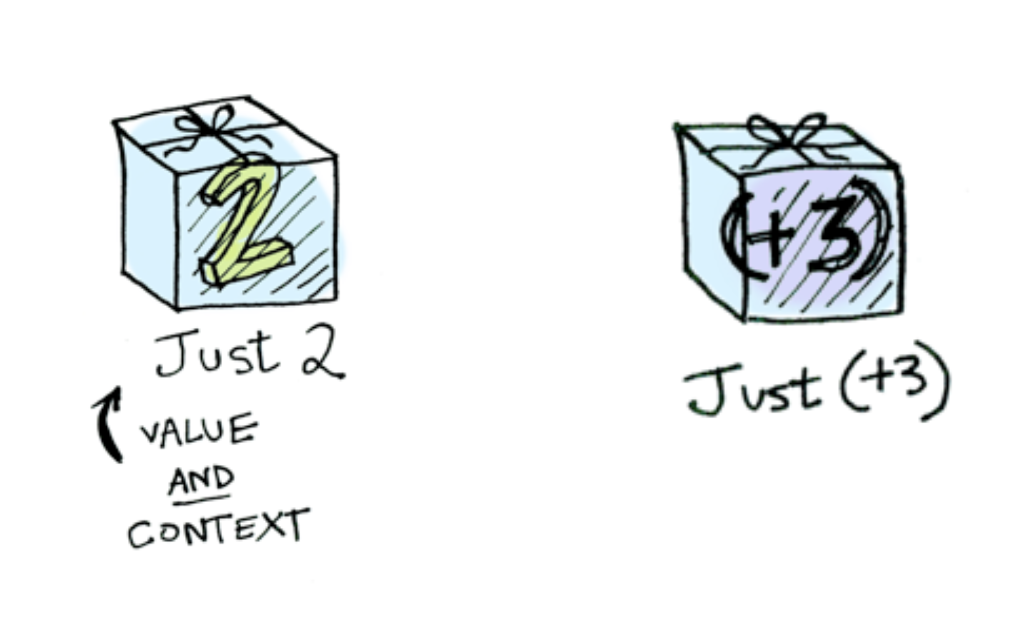 2
Just 2
VALUE
AND
CONTEXT
(+3)
Just (+3)